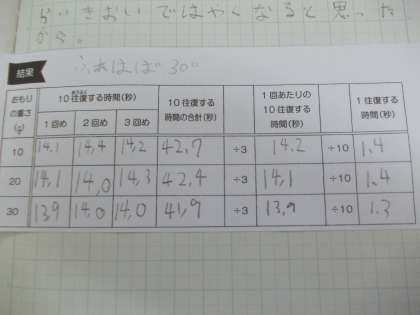 いきおいではやくなると思った
から。
結果
ふれはば30°
おもりの重さ(g) 10往復する時間(秒) 10往復する時間の合計(秒) ÷3 1回あたりの10往復する時間(秒) ÷10 1往復する時間(秒)
1回め 2回め 3回め
10 14,1 14,4 14,2 42.7 ÷3 14.2 ÷10 1.4
20 14,1 14,0 14,3 42.4 ÷3 14,1 ÷10 1.4
30 13.9 14,0 14,0 41,9 ÷3 13,9 ÷10 1.3